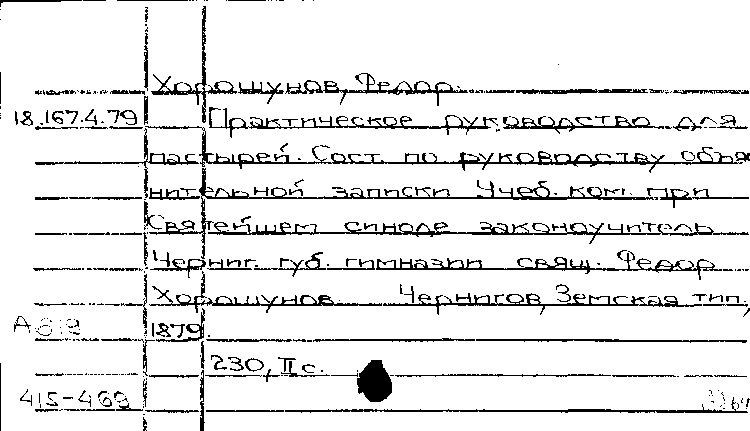 Хорошунов, Федор.
18.167.4.79 Практическое руководство для
пастырей. Сост. по руководству объяс
нительной записки Учеб. ком. при
Святейшем синоде законоучитель
Черниг. губ. гимназии свящ. Федор
Хорошунов. Чернигов, Земская тип.,
1879.
230, II с.
415-469